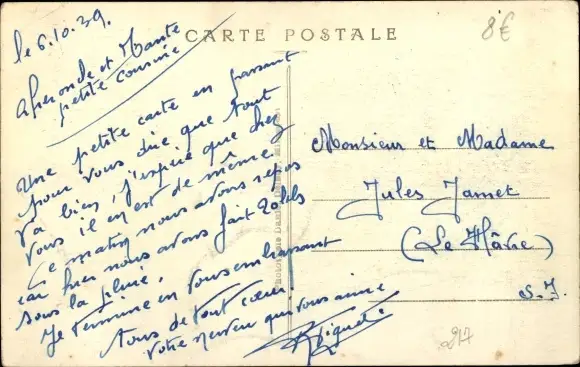 CARTE POSTALE
8€
le 6.10.39.
et Tante
petite cousine
Une petite carte en passant
pour vous dire que tout
va bien, j'espère que chez
vous il en est de même.
Ce matin nous avons repos
car hier nous avons fait 20 kls
sous la pluie.
Je termine en vous embrassant
tous de tout cœur
votre neveu qui vous aime
Monsieur et Madame
Jules Jamet
(Le Hâvre)
S. I.
217